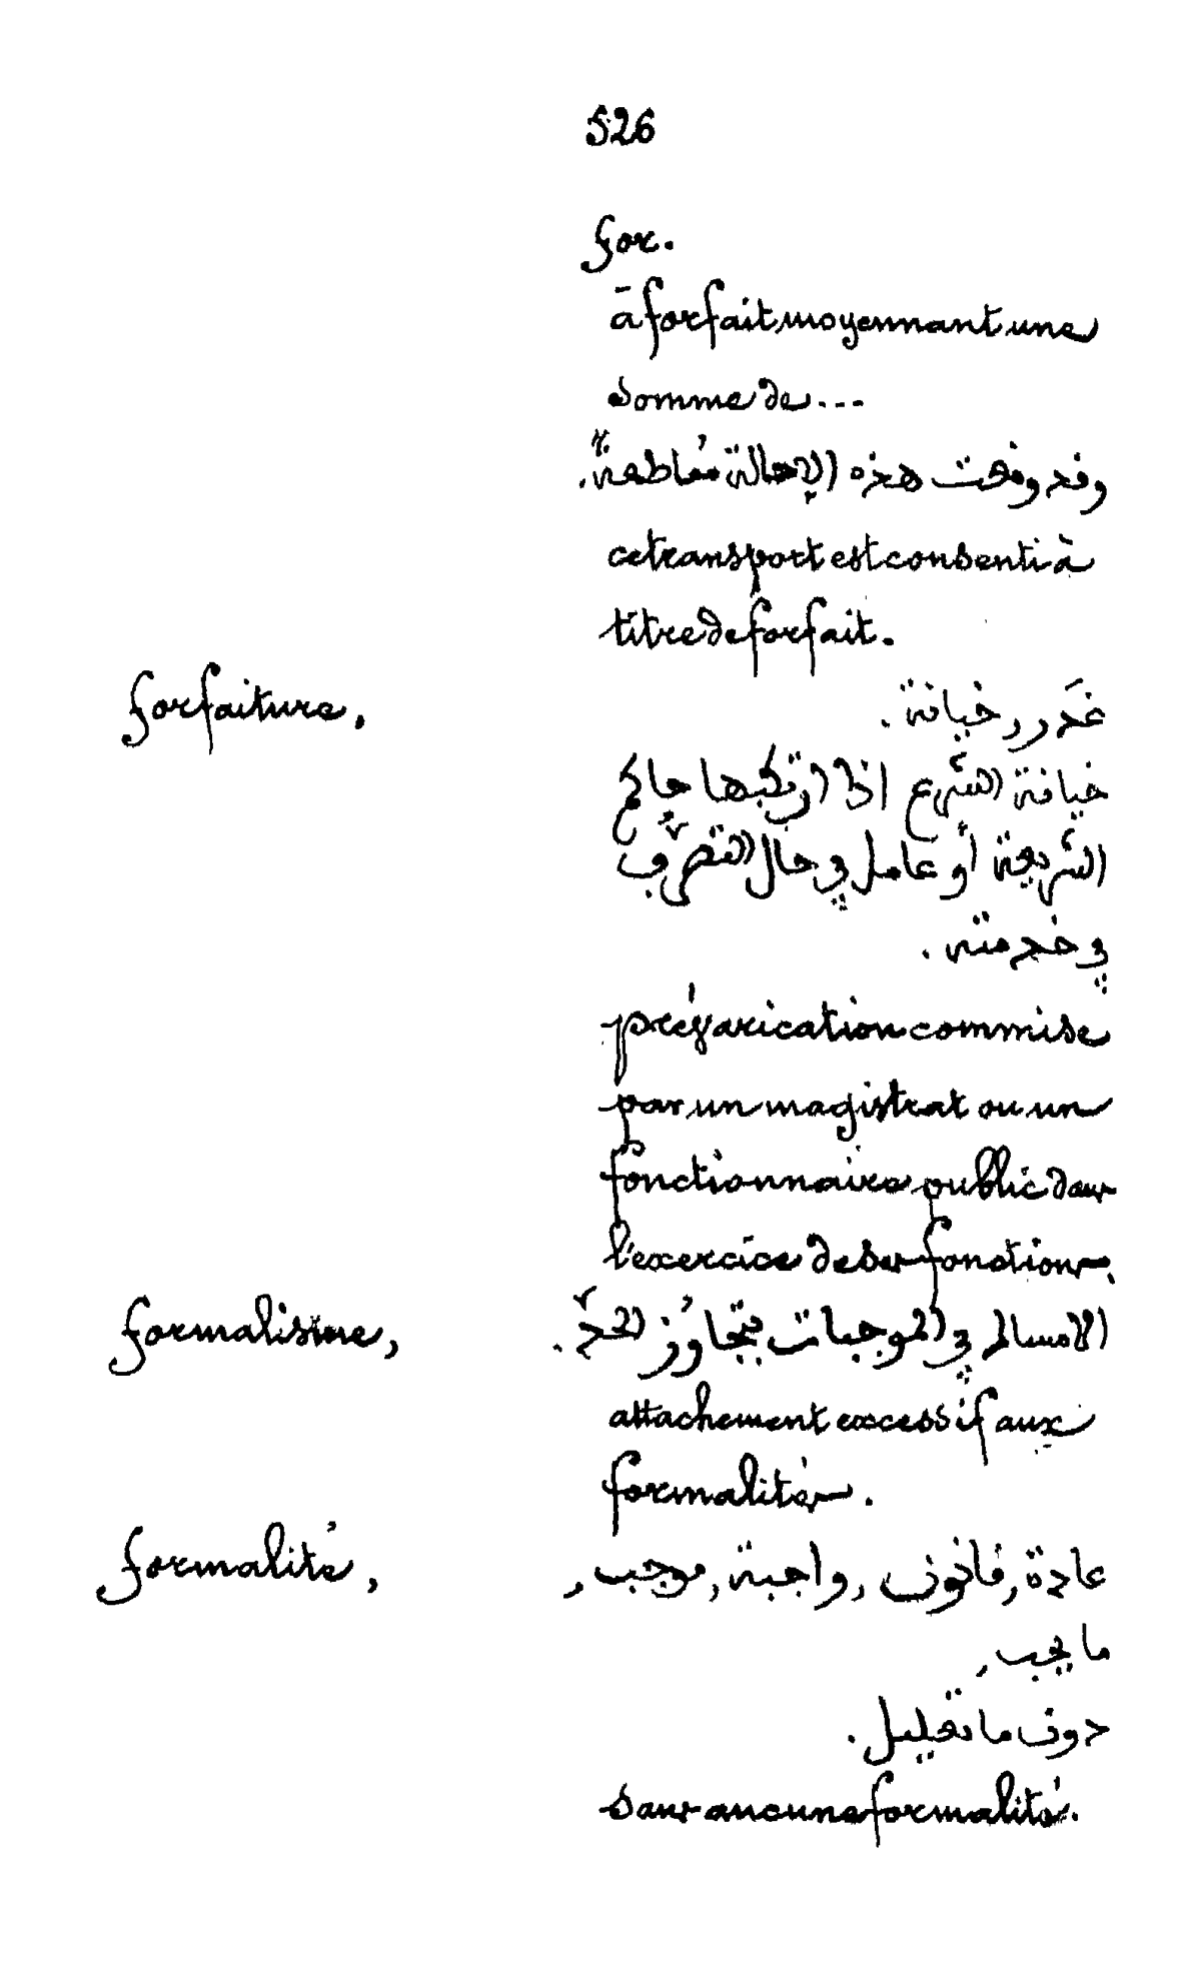 526
for.
à forfait, moyennant une
somme de ...
وقد وقعت هذه الإحالة مُقاطعةً.
ce transport est consenti à
titre de forfait.
forfaiture,
غَدر, خيانة.
خيانة الشَرع اذا ارتكبها حاكم
الشَريعة أو عامل في حال التصرُّف
في خدمته.
prévarication commise
par un magistrat ou un
fonctionnaire public dans
l'exercice de ses fonctions.
formalisme,
الامساك في الموجبات بتجاوُز الحدّ.
attachement excessif aux
formalités.
formalité,
عادة, قانون, واجبة, موجب,
ما يجب,
دون ما تعليل.
sans aucune formalité.